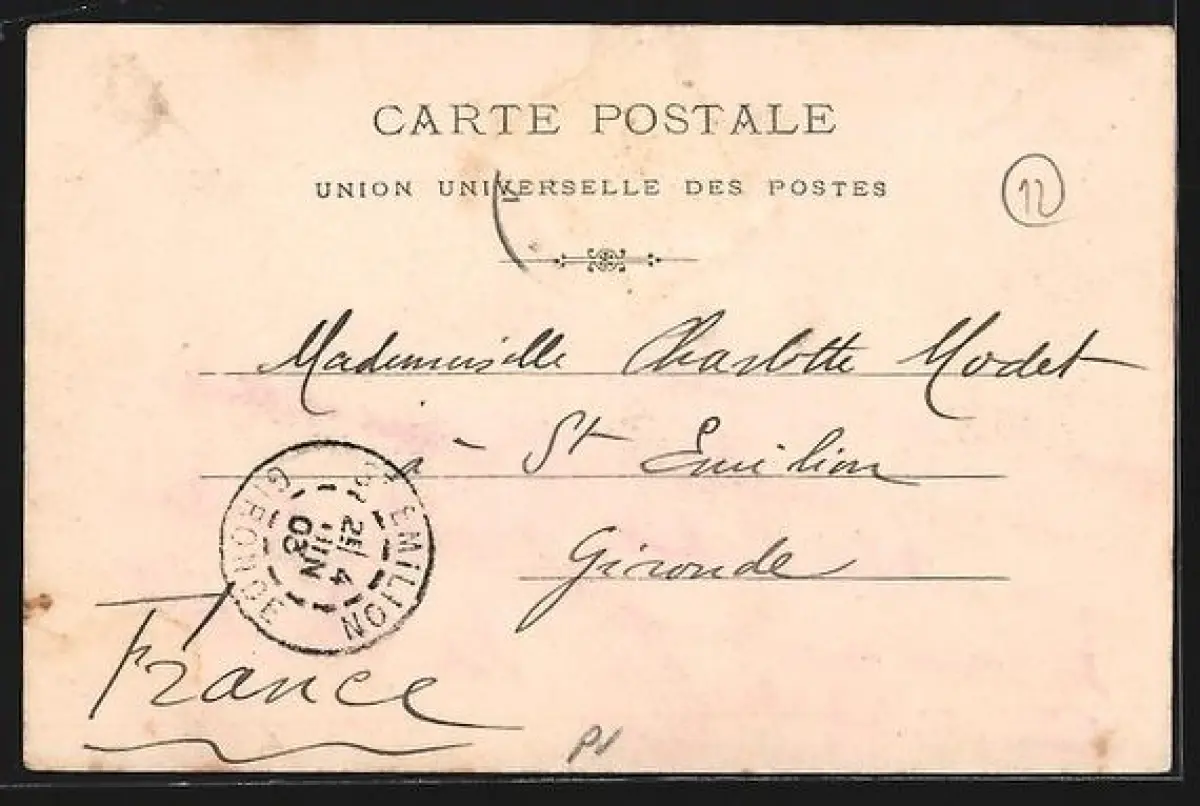 CARTE POSTALE
UNION UNIVERSELLE DES POSTES
12
Mademoiselle Charlotte Modet
à St Emilion
Gironde
EMILION
4
JUIN
03
GIRONDE
France